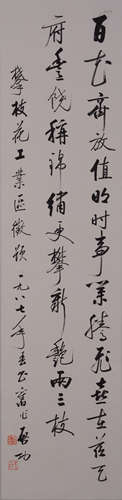 百花齊放值明时事業騰飛喜在茲天
府豊饒稱錦繡更攀新艷兩三枝
攀枝花工業區徵題 一九八七年春 啟功